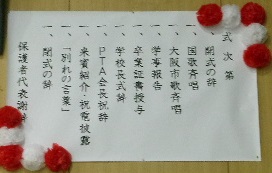 式次第
一、開式の辞
一、国歌斉唱
一、大阪市歌斉唱
一、学事報告
一、卒業証書授与
一、学校長式辞
一、PTA会長祝辞
一、来賓紹介・祝電披露
一、「別れの言葉」
一、閉式の辞
保護者代表謝辞